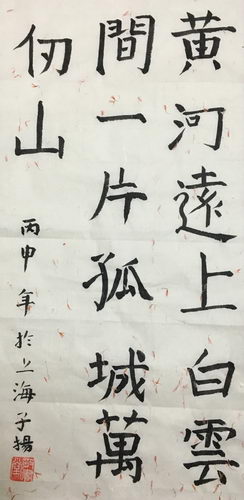 黄河遠上白雲
間一片狐城萬
仞山
丙申年於上海子揚